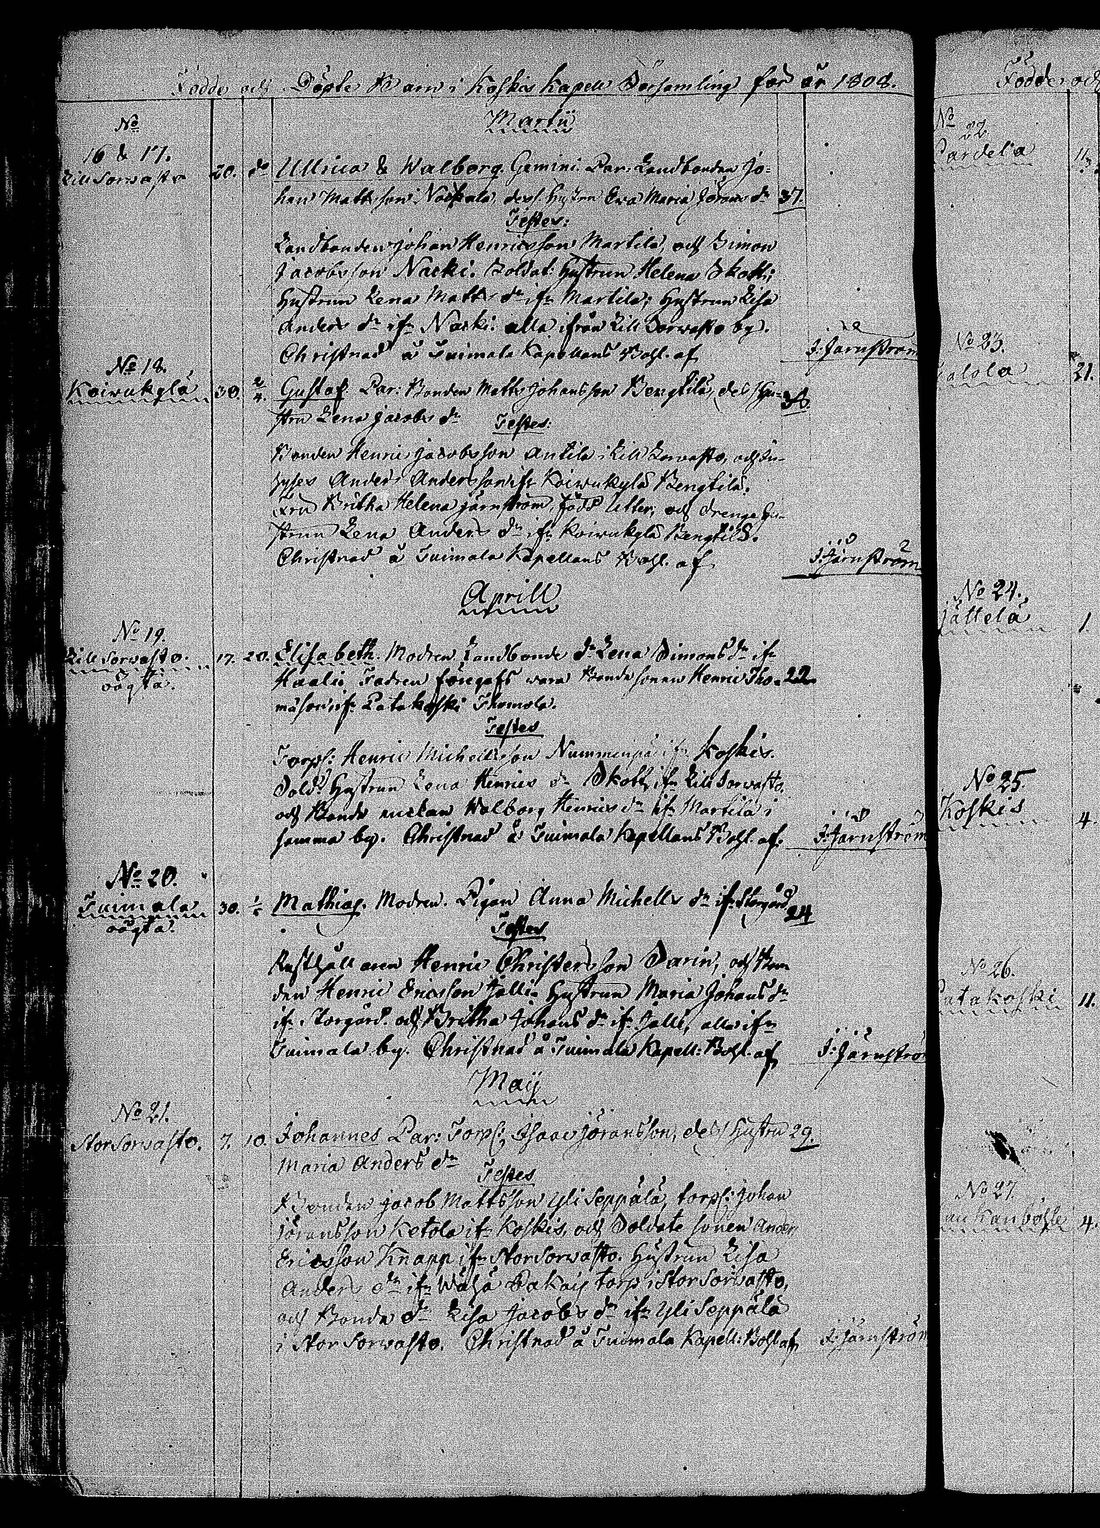 Födde och Döpte Barn i Koskis Kapell Församling för år 1808.
Martii
No
16 & 17.
Lill Sorvasto 20. do Ullrica & Walborg. Gemini. Par: Landbonden Jo-
han Mattsson Naskala, dess Hustru Eva Maria Jörans dr 37.
Testes:
Landbonden Johan Henricsson Martila, och Simon
Jacobsson Naski. Soldat: Hustrun Helena Skott;
Hustrun Lena Matts dr ifr Martila; Hustrun Lisa
Anders dr ifr Naski. alla ifrån Lill Sorvasto by.
Christnad å Tuimala Kapellans Bohl. af J: Järnström
No 18.
Koivukylä 30. 2/4. Gustaf. Par: Bonden Matts Johansson Bengtilä, dess Hu-
stru Lena Jacobs dr 38.
Testes:
Bonden Henric Jacobsson Antila i Lill Sorvasto, och In-
hyses Anders Andersson ifr Koivukylä Bengtilä.
Fru Britha Helena Järnström, född Utter, och drenge Hu-
strun Lena Anders dr ifr Koivukylä Bengtilä.
Christnad å Tuimala Kapellans Bohl. af J: Järnström
Aprill
No 19.
Lill Sorvasto. 17. 20. Elisabeth. Modren Landbonde dr Lena Simons dr ifr
oägta. Haali Fadren föregafs vara Bonde sonen Henric Tho- 22.
mäson ifr Patakoski Thomola.
Testes
Torp: Henric Michelsson Nummenpä ifr Koskis.
Sold: Hustrun Lena Henrics dr Skott, ifr Lill Sorvasto,
och Bonde enckan Walborg Henrics dr ifr Martilä i
samma by. Christnad å Tuimala Kapellans Bohl. af. J: Järnström
No 20.
Tuimala 30. 1/5 Mathias. Modren. Pigan Anna Michells dr ifr Storgård 24
oägta.
Testes
Rusthållaren Henric Christersson Sarin, och Bon
den Henric Ericsson Jalli. Hustrun Maria Johans dr
ifr Storgård. och Britha Johans dr ifr Jalli, alla ifr
Tuimala by. Christnad å Tuimala Kapell: Bohl. af J: Järnström
Maij
No 21.
Stor Sorvasto. 7. 10. Johannes Par: Torp: Isaac Jöransson, dess Hustru 29.
Maria Anders dr
Testes
Bonden Jacob Mattsson Yli Seppälä, torp: Johan
Jöransson Ketola ifr Koskis, och Soldate sonen Anders
Ericsson Knapp ifr Stor Sorvasto. Hustrun Lisa
Anders dr ifr torp i Stor Sorvasto,
och Bonde dr Lisa Jacobs dr ifr Yli Seppälä
i Stor Sorvasto. Christnad å Tuimala Kapell: Bohl af J: Järnström
Födde och
No
22
Pardela
No 23.
21.
No 24.
Jättelä 1.
No 25.
Koskis 4.
No 26.
Patakoski 11.
No 27.
4.